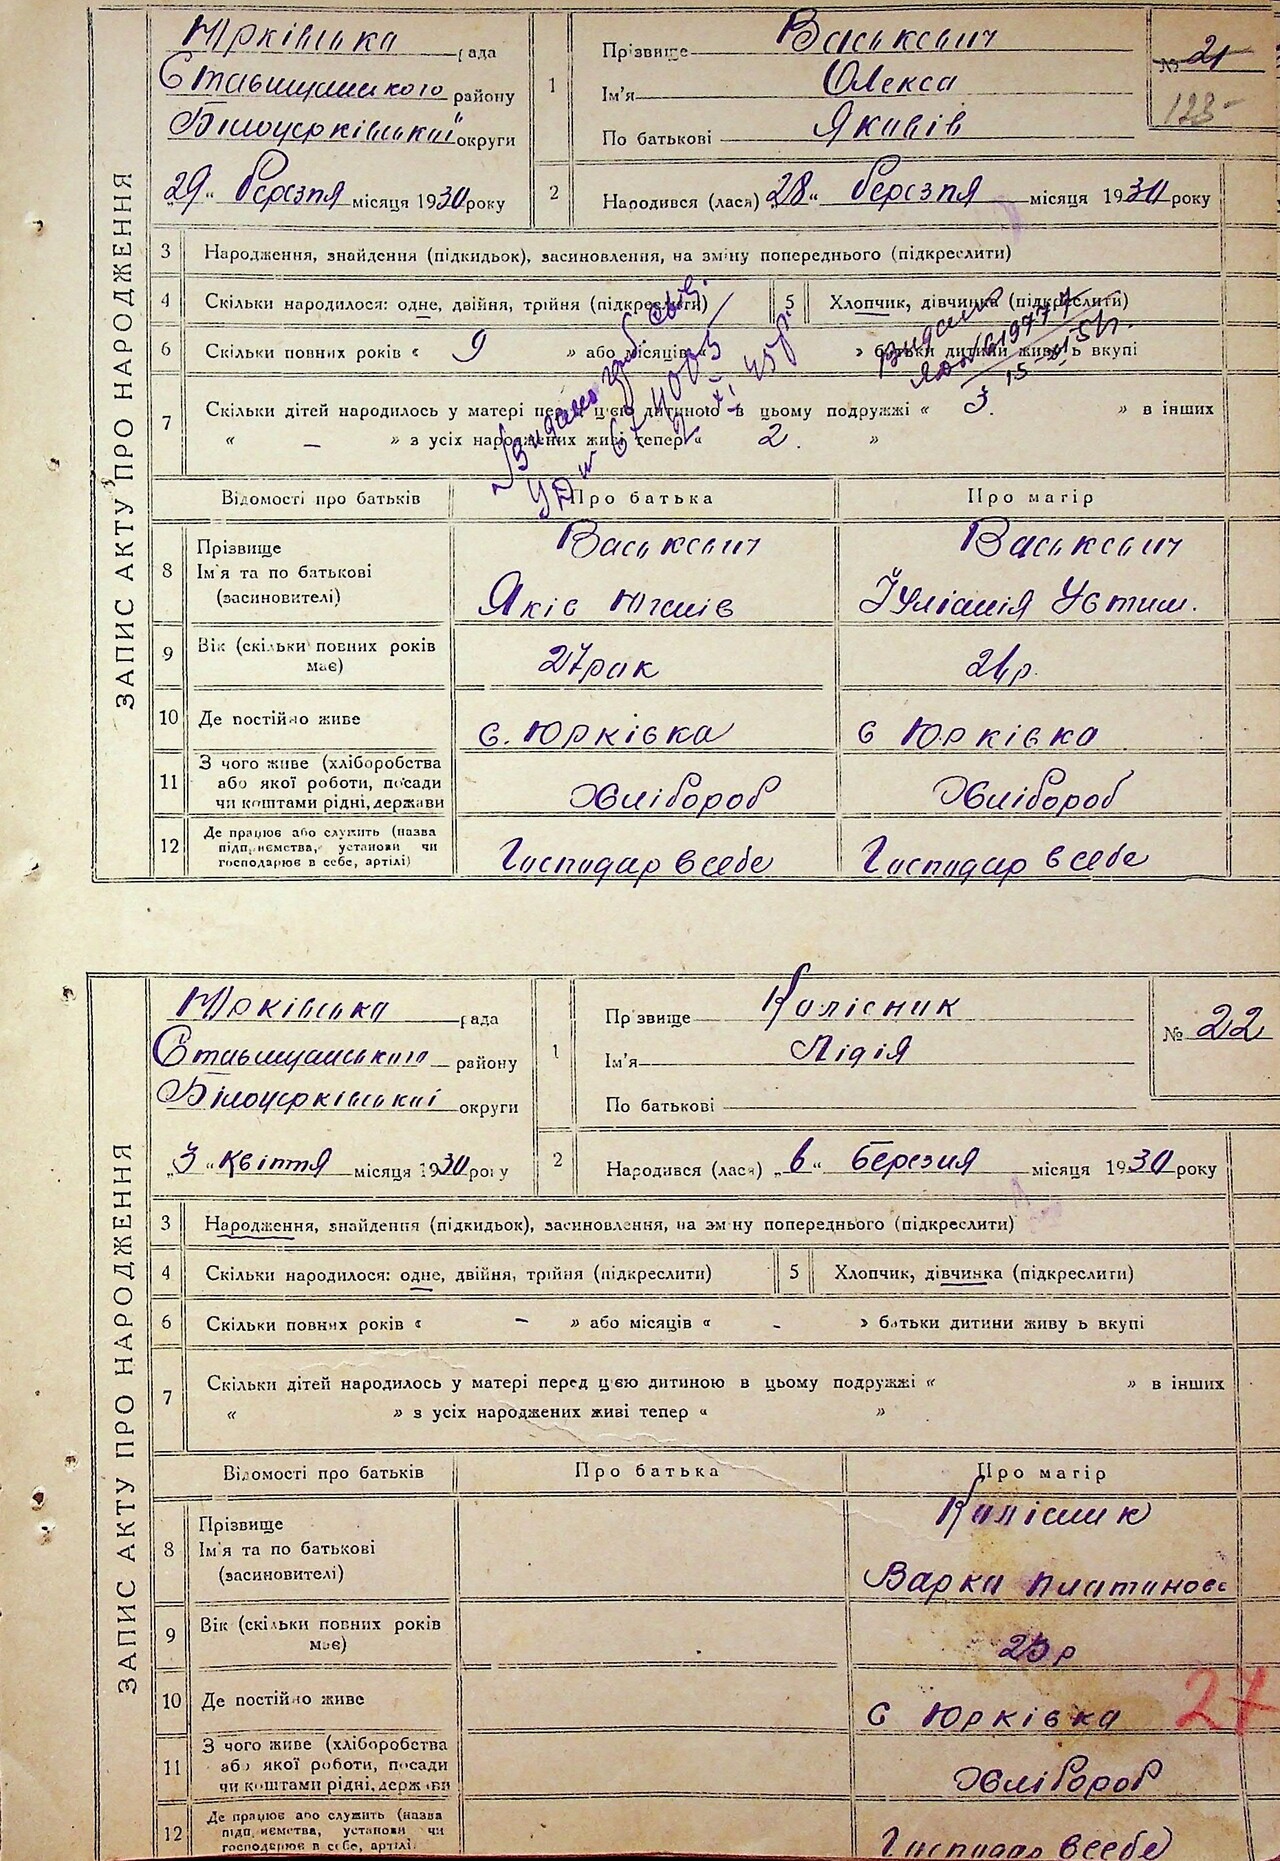 ЗАПИС АКТУ ПРО НАРОДЖЕННЯ
Юрківська рада
Ставищанського району
Білоцерківської округи
„29“ березня місяця 1930 року
1
Прізвище Васькевич
Ім'я Олекса
По батькові Яковів
№ 21
123
2
Народився (лася) „28“ березня місяця 1930 року
3 Народження, знайдення (підкидьок), засиновлення, на зміну попереднього (підкреслити)
4 Скільки народилося: одне, двійня, трійня (підкреслити)
5 Хлопчик, дівчинка (підкреслити)
6 Скільки повних років « 9 » або місяців « » батьки дитини живуть вкупі
7 Скільки дітей народилось у матері перед цією дитиною в цьому подружжі « 3. » в інших
« — » з усіх народжених живі тепер « 2. »
Відомості про батьків Про батька Про матір
8 Прізвище
Ім'я та по батькові
(засиновителі)
Васькевич
Яків
Васькевич
Іуліанія Устим.
9 Вік (скільки повних років має)
27 рок
10 Де постійно живе
с. Юрківка
с Юрківка
11 З чого живе (хліборобства
або якої роботи, посади
чи коштами рідні, держави
Хлібороб
Хлібороб
12 Де працює або служить (назва
підприємства, установи чи
господарює в себе, артілі)
Господар в себе
Господар в себе
ЗАПИС АКТУ ПРО НАРОДЖЕННЯ
Юрківська рада
Ставищанського району
Білоцерківської округи
„3“ квіття місяця 1930 року
1
Прізвище Колісник
Ім'я Лідія
По батькові
№ 22
2
Народився (лася) „6“ березня місяця 1930 року
3 Народження, знайдення (підкидьок), засиновлення, на зміну попереднього (підкреслити)
4 Скільки народилося: одне, двійня, трійня (підкреслити)
5 Хлопчик, дівчинка (підкреслити)
6 Скільки повних років « - » або місяців « - » батьки дитини живуть вкупі
7 Скільки дітей народилось у матері перед цією дитиною в цьому подружжі « » в інших
« » з усіх народжених живі тепер « »
Відомості про батьків Про батька Про матір
8 Прізвище
Ім'я та по батькові
(засиновителі)
Колісник
Варка
9 Вік (скільки повних років має)
10 Де постійно живе
с Юрківка
27
11 З чого живе (хліборобства
або якої роботи, посади
чи коштами рідні, держави
Хлібороб
12 Де працює або служить (назва
підприємства, установи чи
господарює в себе, артілі)
Господар в себе